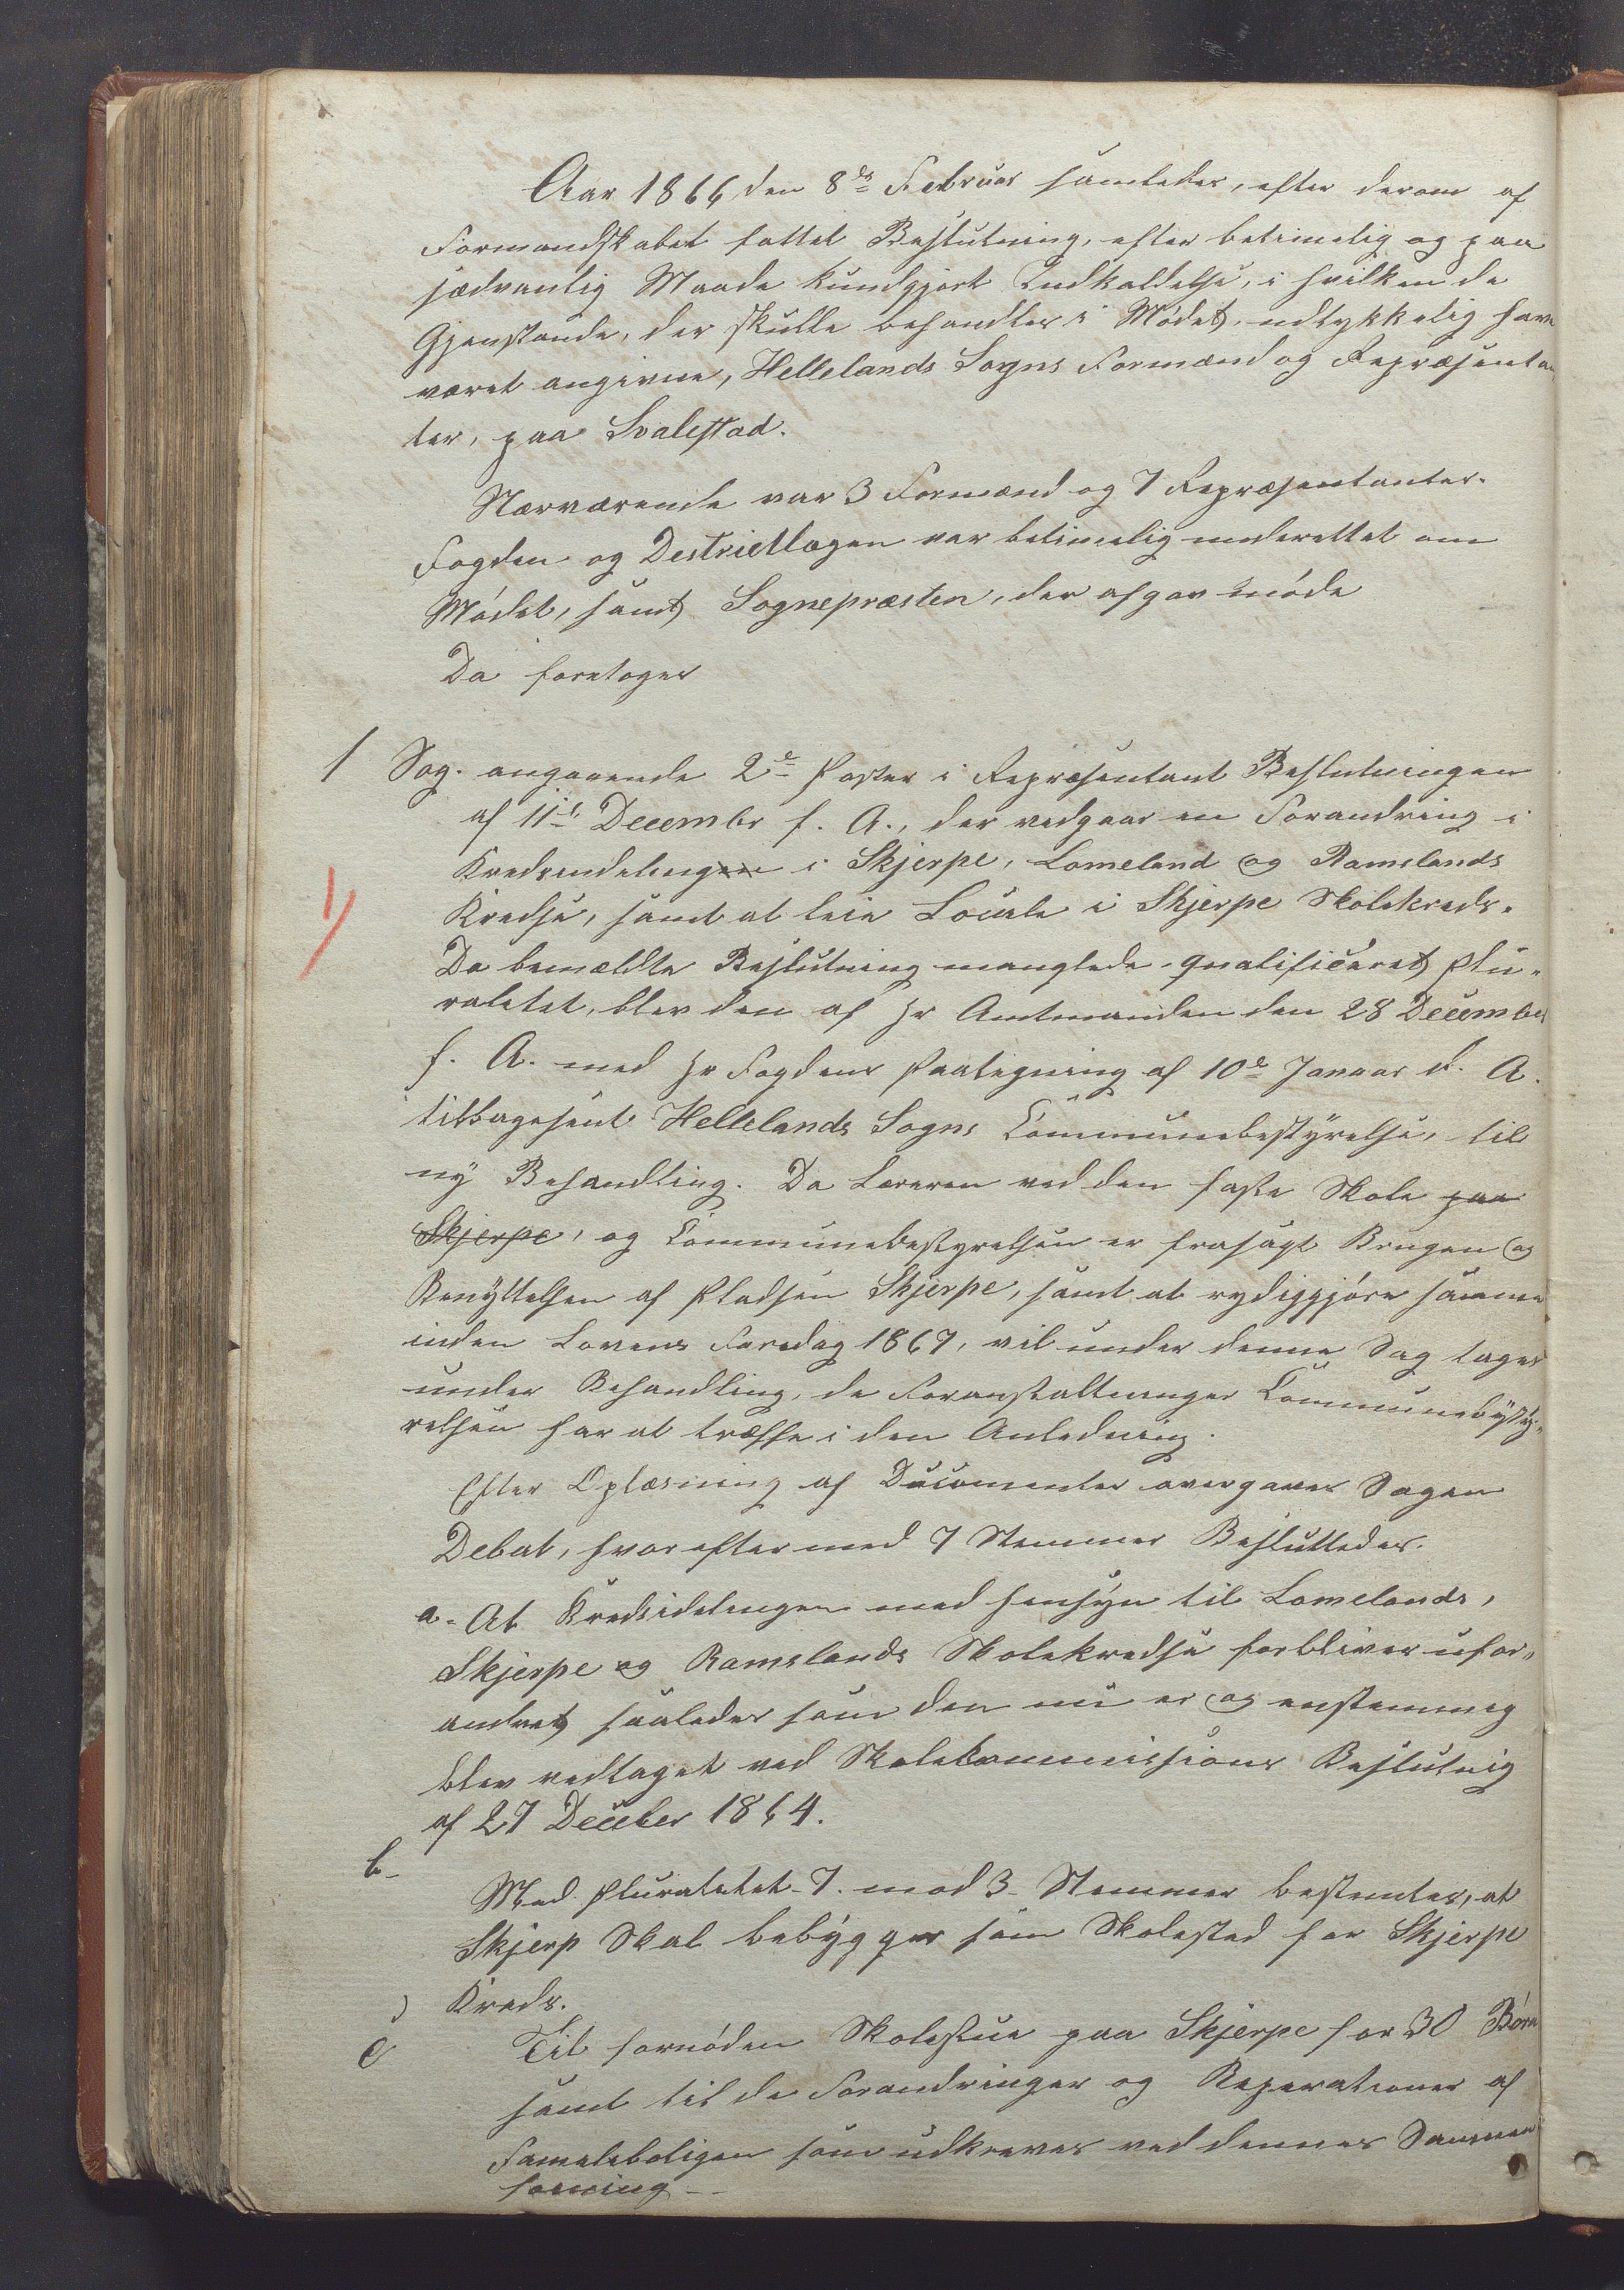 Aar 1866 den 8de Februar samledes, efter derom af
Formandskabet fattet Beslutning, efter betimelig og paa
sædvanlig Maade kundgjort Indkaldelse, i hvilken de
Gjenstande, der skulle behandles i Mødet, udtykkelig have
været angivne, Hellelands Sogns Formænd og Repræsentan
ter, paa Svalestad.
Nærværende var 3 Formænd og 7 Repræsentanter.
Fogden og Destrictlægen var betimelig underettet om
Mødet, samt Sognepræsten, der afgav møde
Da foretoges
1 Sag. angaaende 2de Poster i Repræsentant Beslutningen
af 11te Decembr f. A., der vedgaar en Forandring i
Kredsindelingen i Skjerpe, Lomeland og Ramslands
1)
Kredse, samt at leie Locale i Skjerpe Skolekreds.
Da bemældte Beslutning manglede qvalificeret Plu-
ralitet, blev den af Hr Amtmanden den 28 December
f. A. med Hr Fogdens Paategning af 10de Januar d. A.
tilbagesent Hellelands Sogns Communebestyrelse, til
ny Behandling. Da Læreren ved den faste Skole paa
Skjerpe, og Communebestyrelsen er frasagt Brugen og
Benyttelsen af Pladsen Skjerpe, samt at rydiggjøre samme
inden Lovens Faredag 1867, vil under denne Sag tages
under Behandling, de Foranstaltninger Communebysty-
relsen har at træffe i den Anledning.
Efter Oplæsning af Documenter overgaves Sagen
Debat, hvorefter med 7 Stemmer Besluttedes.
a. At Kredsidelingen med Hensyn til Lomelands,
Skjerpe og Ramslands Skolekredse forbliver ufor-
andret saaledes som den nu er og enstemmig
blev vedtaget ved Skolekommissions Beslutnig
af 27 Deceber 1864.
b-
Med Pluralitet 7. mod 3 Stemmer bestemtes, at
Skjerp Skal bebygges som Skolested for Skjerpe
Kreds.
c Til fornøden Skolestue paa Skjerpe for 30 Børn
samt til de Forandringer og Reperationer af
Familieboligen som udkræves ved dennes Sammen
føining -